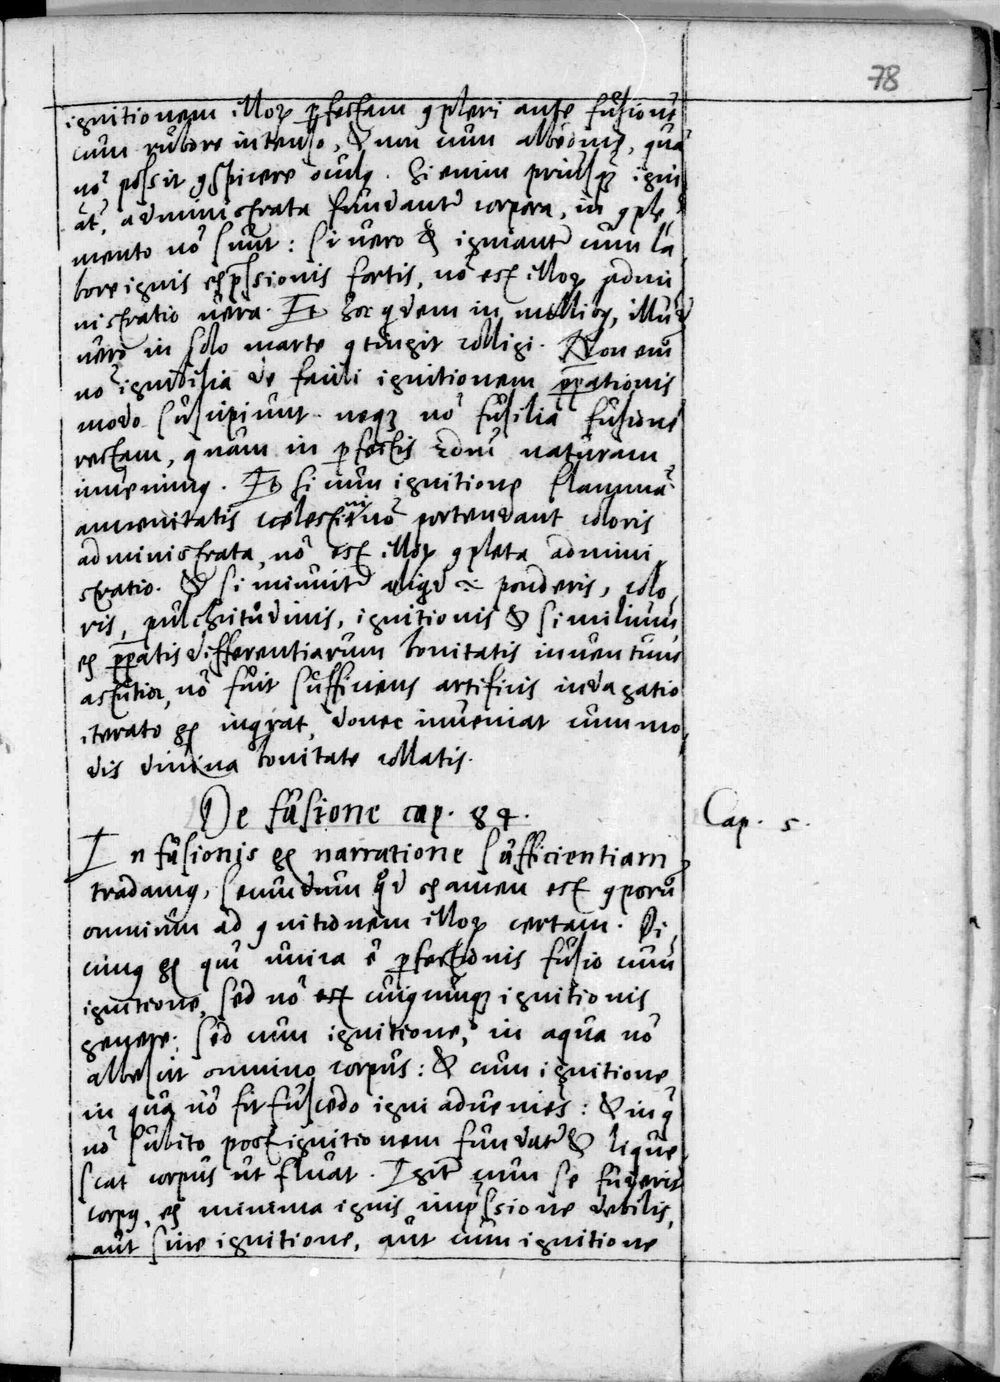 78
ignitionem illoꝝ ꝑfectam ꝯpleri ante fusionē
cum rubore intenso, & non cum albedine, quā
nō possit ꝯspicere oculꝯ. Si enim priusqꝫ igni
āt, administrata fundantr̄ corpora, in ꝯple
mento nō sunt: si vero & igniantr̄ cum la
bore ignis exp̄ssionis fortis, nō est illoꝝ admi
nistratio vera. Et hoc qdem in mollibꝯ, illud
vero in solo marte ꝯtingit colligi. Non eni
nō ignibilia de facili ignitionem p̄parationis
modo suscipiunt. neqꝫ nō fusilia fusionē
rectam, quam in ꝑfectis scdm naturam
invenimꝯ. Et si cum ignitione flammā
amoenitatis coelestini nō portendant coloris
administrata, nō est illoꝝ ꝯpleta admini
stratio. & si minuitr̄ aliqd ponderis, colo
ris, pulchritudinis, ignitionis & similium
ex p̄paratis differentiarum bonitatis inventum
astutior, nō fuit sufficiens artificis indagatio
iterato inqrat, donec inveniat cum mo
dis divina bonitate collatis.
De fusione cap. 84.
Cap. 5.
In fusionis narratione sufficientiam
tradamꝯ, secundum qd examen est ꝯporū
omnium ad ꝯnitionem illoꝝ certam. Di
cimꝯ qui unica ē ꝑfectionis fusio cum
ignitione, sed nō est cuiqumqꝫ ignitionis
genere: sed cum ignitione, in aqua nō
albescit omnino corpus: & cum ignitione
in qua nō fit fuscedo igni advenies: & in q
nō subito post ignitionem fundatr̄ & lique
scat corpus ut fluat. Igitr̄ cum se fuderit
corpꝯ, ex minima ignis imp̄ssione debilis,
aut sine ignitione, aut cum ignitione